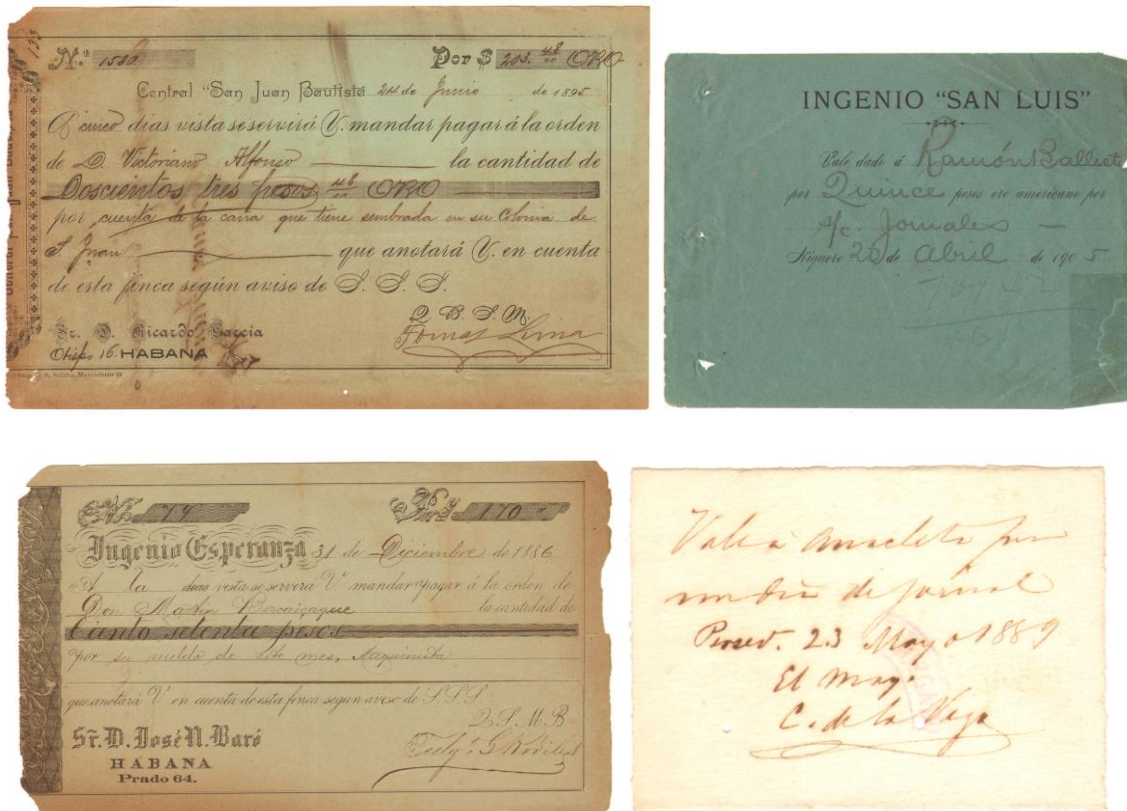 Nº 1500 Por $ 203.48/00 ORO
Central "San Juan Bautista 24 de Junio de 1895
A cinco dias vista se servirá V. mandar pagar á la orden
de D. Victoriano Alfonso la cantidad de
Doscientos tres pesos 48/00 ORO
por cuenta de la caña que tiene sembrada en su Colonia de
S. Juan que anotará V. en cuenta
de esta finca según aviso de S. S. S.
Q. B. S. M.
Tomas Lima
Sr. D. Ricardo Garcia
Obispo 16. HABANA
INGENIO "SAN LUIS"
Vale dado á Ramón Balleste
por Quince pesos oro americano por
s/c. Jornales
Niquero 25 de Abril de 1905
Nº 74 Por $ 170
Ingenio Esperanza 31 de Diciembre de 1886
A la dias vista se servirá V. mandar pagar á la orden de
Don Martin la cantidad de
Ciento setenta pesos
por su sueldo de este mes, Maquinista
que anotará V. en cuenta de esta finca segun aviso de S. S. S.
Q. S. M. B.
Sr. D. José N. Baró
HABANA
Prado 64.
Vale a Anacleto por
un dia de jornal
Persev. 23 Mayo 1889
El May.
C. de la Vega